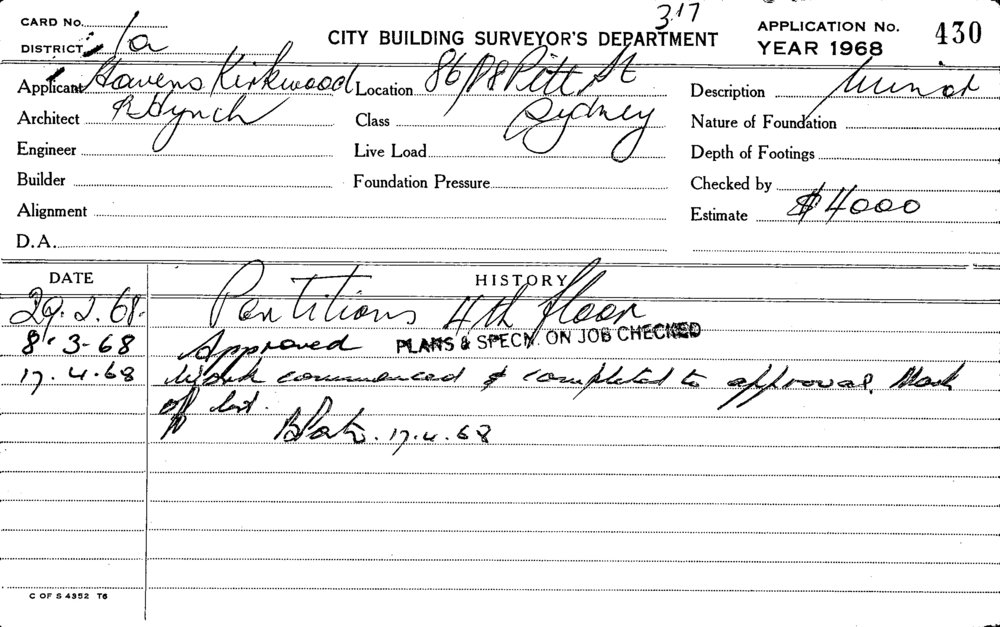 CARD No.
317
APPLICATION No. 430
DISTRICT 1a
CITY BUILDING SURVEYOR'S DEPARTMENT
YEAR 1968
Applicant Kirkwood Location 86/88 Pitt St Description Minor
Architect R Lynch Class Sydney Nature of Foundation
Engineer Live Load Depth of Footings
Builder Foundation Pressure Checked by
Alignment Estimate $4000
D.A.
DATE HISTORY
29.2.68. Partitions 4th floor
8.3-68 Approved PLANS & SPECN. ON JOB CHECKED
17.4.68 Work commenced & completed to approval. Mark
off list.
17.4.68
C OF S 4352 T6